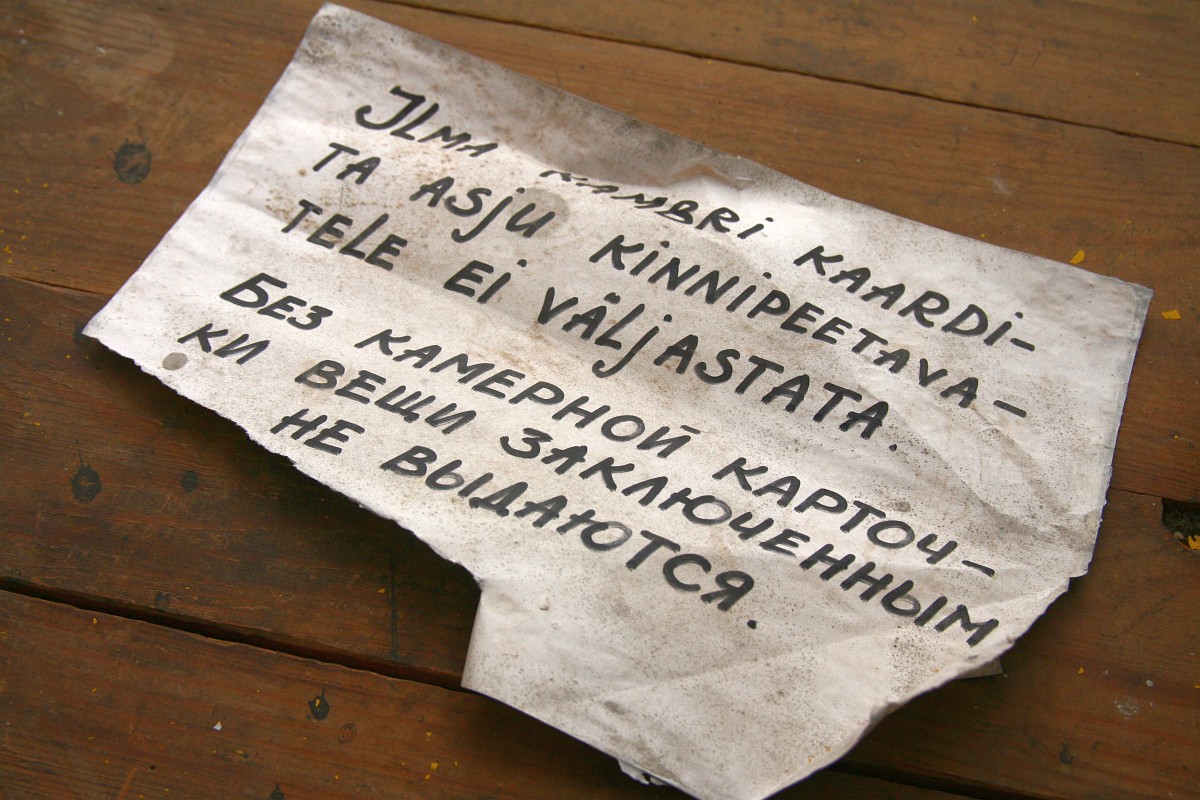 ILMA KAMBRI KAARDI-
TA ASJU KINNIPEETAVA-
TELE EI VÄLJASTATA.
БЕЗ КАМЕРНОЙ КАРТОЧ-
КИ ВЕЩИ ЗАКЛЮЧЕННЫМ
НЕ ВЫДАЮТСЯ.